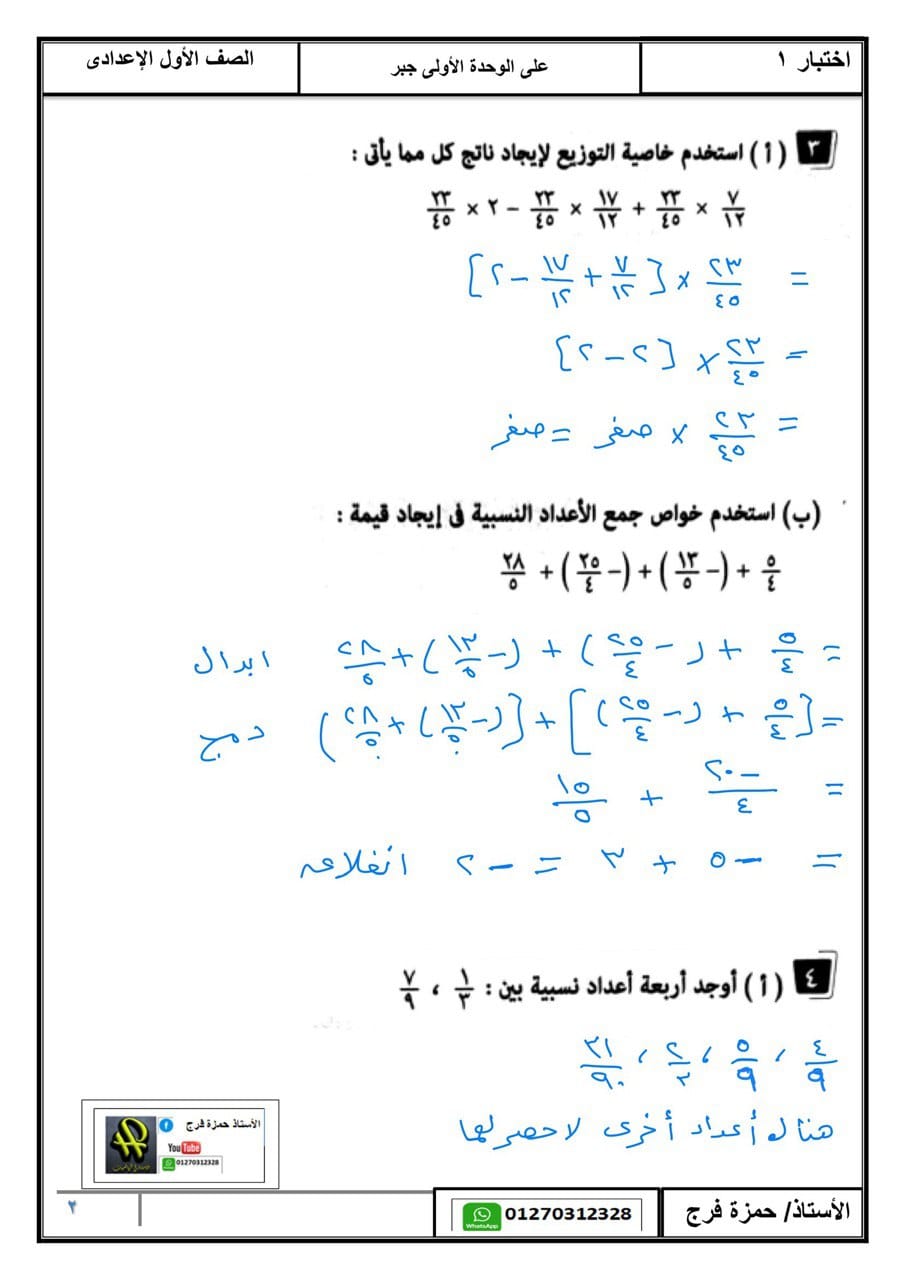 اختبار ١
على الوحدة الأولى جبر
الصف الأول الإعدادى
٣ ( أ ) استخدم خاصية التوزيع لإيجاد ناتج كل مما يأتى :
٧/١٢ × ٢٣/٤٥ + ١٧/١٢ × ٢٣/٤٥ − ٢ × ٢٣/٤٥
= ٢٣/٤٥ × [٧/١٢ + ١٧/١٢ − ٢]
= ٢٣/٤٥ × [٢ − ٢]
= ٢٣/٤٥ × صفر = صفر
(ب) استخدم خواص جمع الأعداد النسبية فى إيجاد قيمة :
٥/٤ + (− ١٣/٥) + (− ٢٥/٤) + ٢٨/٥
= ٥/٤ + (− ٢٥/٤) + (− ١٣/٥) + ٢٨/٥ ابدال
= [٥/٤ + (− ٢٥/٤)] + [(− ١٣/٥) + ٢٨/٥) دمج
= −٢٠/٤ + ١٥/٥
= −٥ + ٣ = −٢ انغلاق
٤ ( أ ) أوجد أربعة أعداد نسبية بين : ١/٣ ، ٧/٩
٤/٩ ، ٥/٩ ، ٢/٣ ، ٣١/٩٠
هناك أعداد أخرى لا حصر لها
الأستاذ حمزة فرج
YouTube
01270312328
الأستاذ/ حمزة فرج
WhatsApp
01270312328
٢